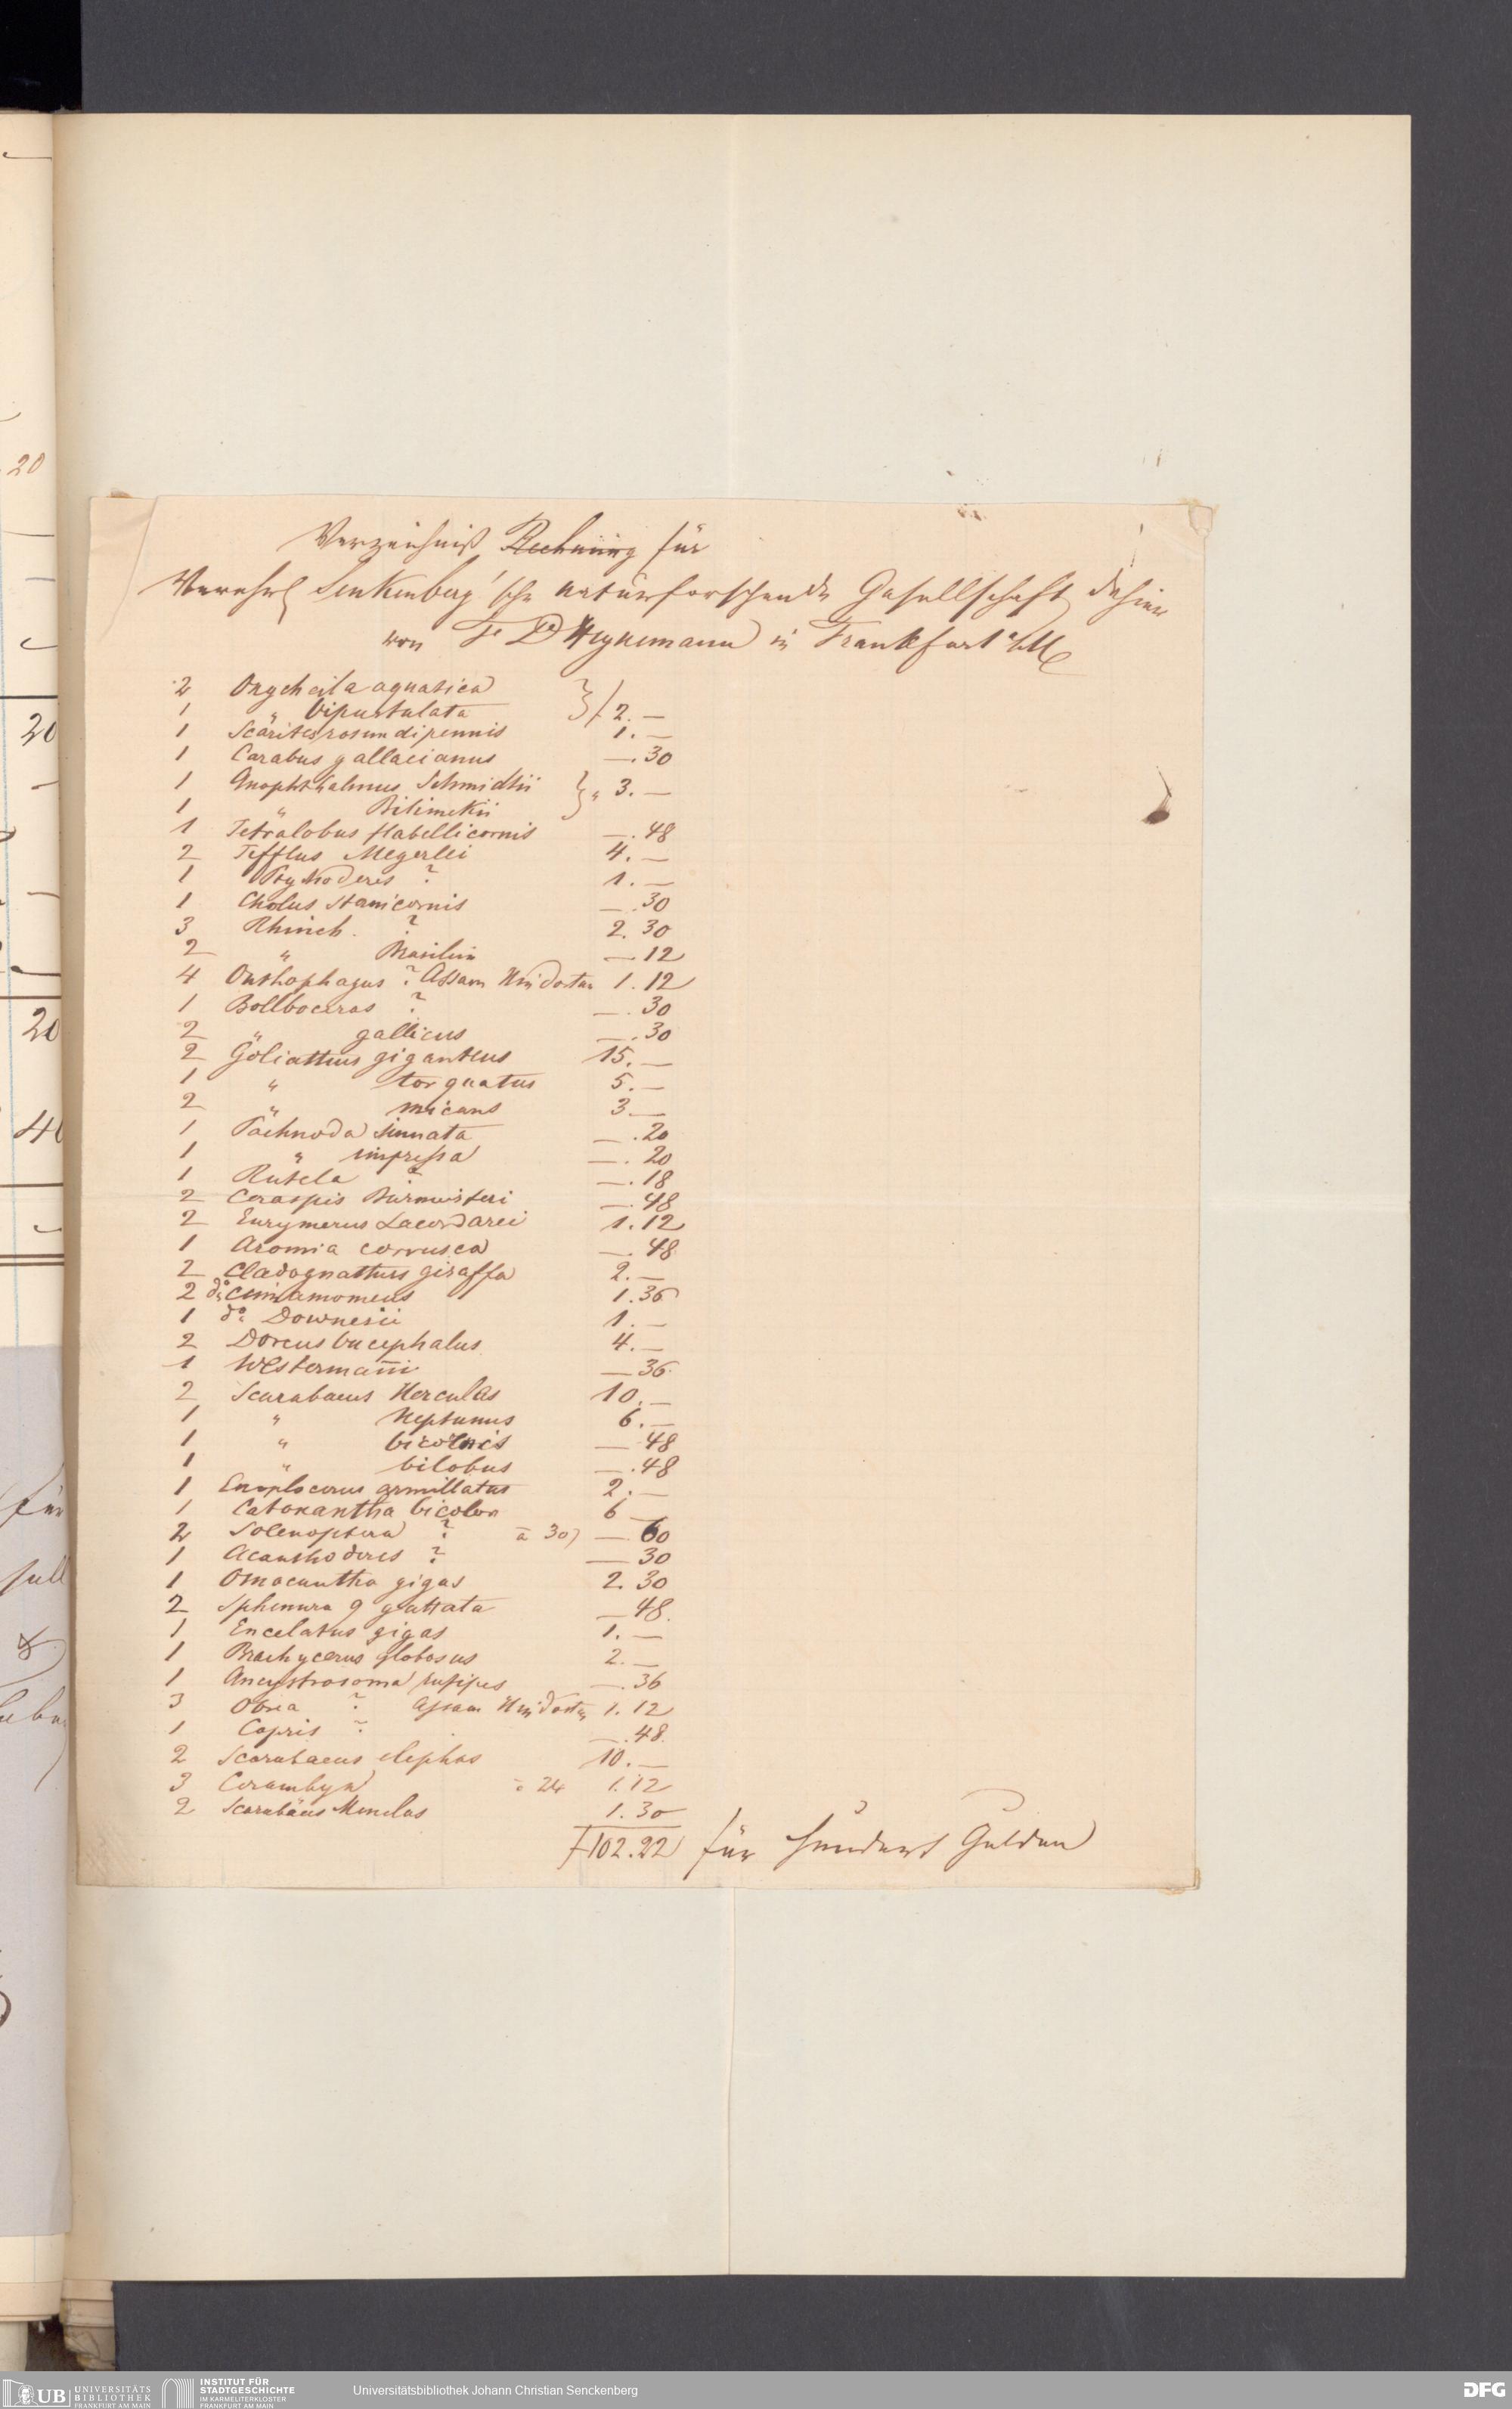 20
20
20
40
Verzeichniß Rechnung für
Verehrl Senkenberg'sche naturforschende Gesellschaft dahier
von Fr Dd Heynemann in Frankfurt a/M
2 Oxycheila aquatica
1 " bipustulata } f 2. —
1 Scarites rotundipennis 1. —
1 Carabus gallacianus —. 30
1 Anophthalmus Schmidtii
1 " Bilimekii } " 3. —
1 Tetralobus flabellicornis —. 48
2 Tefflus Megerlei 4. —
1 Ptychoderes ? 1. —
1 Cholus 30
3 Rhinch. ? 2. 30
2 " Brasilien — 12
4 Onthophagus ? Assam Hindostan 1. 12
1 Bollboceras ? —. 30
2 " gallicus —. 30
2 Goliathus giganteus 15. —
1 " torquatus 5. —
2 " micans 3. —
1 Pachnoda sinuata —. 20
1 " impressa —. 20
1 Rutela ? —. 18
2 Ceraspis Burmeisteri —. 48
2 Eurymerus Lacordarei 1. 12
1 Aromia corrusca —. 48
2 Cladognathus giraffa 2. —
2 do cinnamomeus 1. 36
1 do Downesii 1. —
2 Dorcus bucephalus 4. —
1 Westermani̅ — 36
2 Scarabaeus Hercules 10. —
1 " Neptunus 6. —
1 " bicornis — 48
1 " bilobus —. 48
1 Enoplocerus armillatus 2. —
1 Catoxantha bicolor 6 —
2 Solenoptera ? a 30) — 60
1 Acanthoderes ? — 30
1 Omacantha gigas 2. 30
2 Sphenura 9 guttata — 48.
1 Encelatus gigas 1. —
1 Brachycerus globosus 2. —
1 Ancystrosoma rufipes —. 36
3 Obrea ? Assam Hindostan 1. 12
1 Copris ? —. 48.
2 Scarabaeus elephas 10. —
3 Cerambyx a 24 1. 12
2 Scarabäus Menelas 1. 30
f 102. 22 für hundert Gulden
UB
UNIVERSITÄTS
BIBLIOTHEK
FRANKFURT AM MAIN
INSTITUT FÜR
STADTGESCHICHTE
IM KARMELITERKLOSTER
FRANKFURT AM MAIN
Universitätsbibliothek Johann Christian Senckenberg
DFG